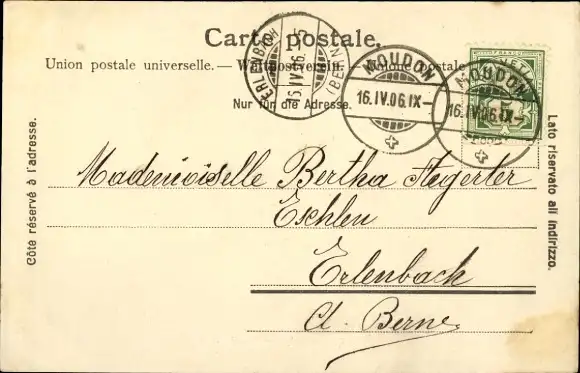 Carte postale.
Union postale universelle. — Weltpostverein. — Unione postale
Nur für die Adresse.
ERLENBACH
(BERN)
MOUDON
16.IV.06.IX—
MOUDON
16.IV.06.IX—
Côte réservé à l'adresse.
Lato riservato all indirizzo.
Mademoiselle Bertha Aegerter
Eschlen
Erlenbach
Ct. Berne